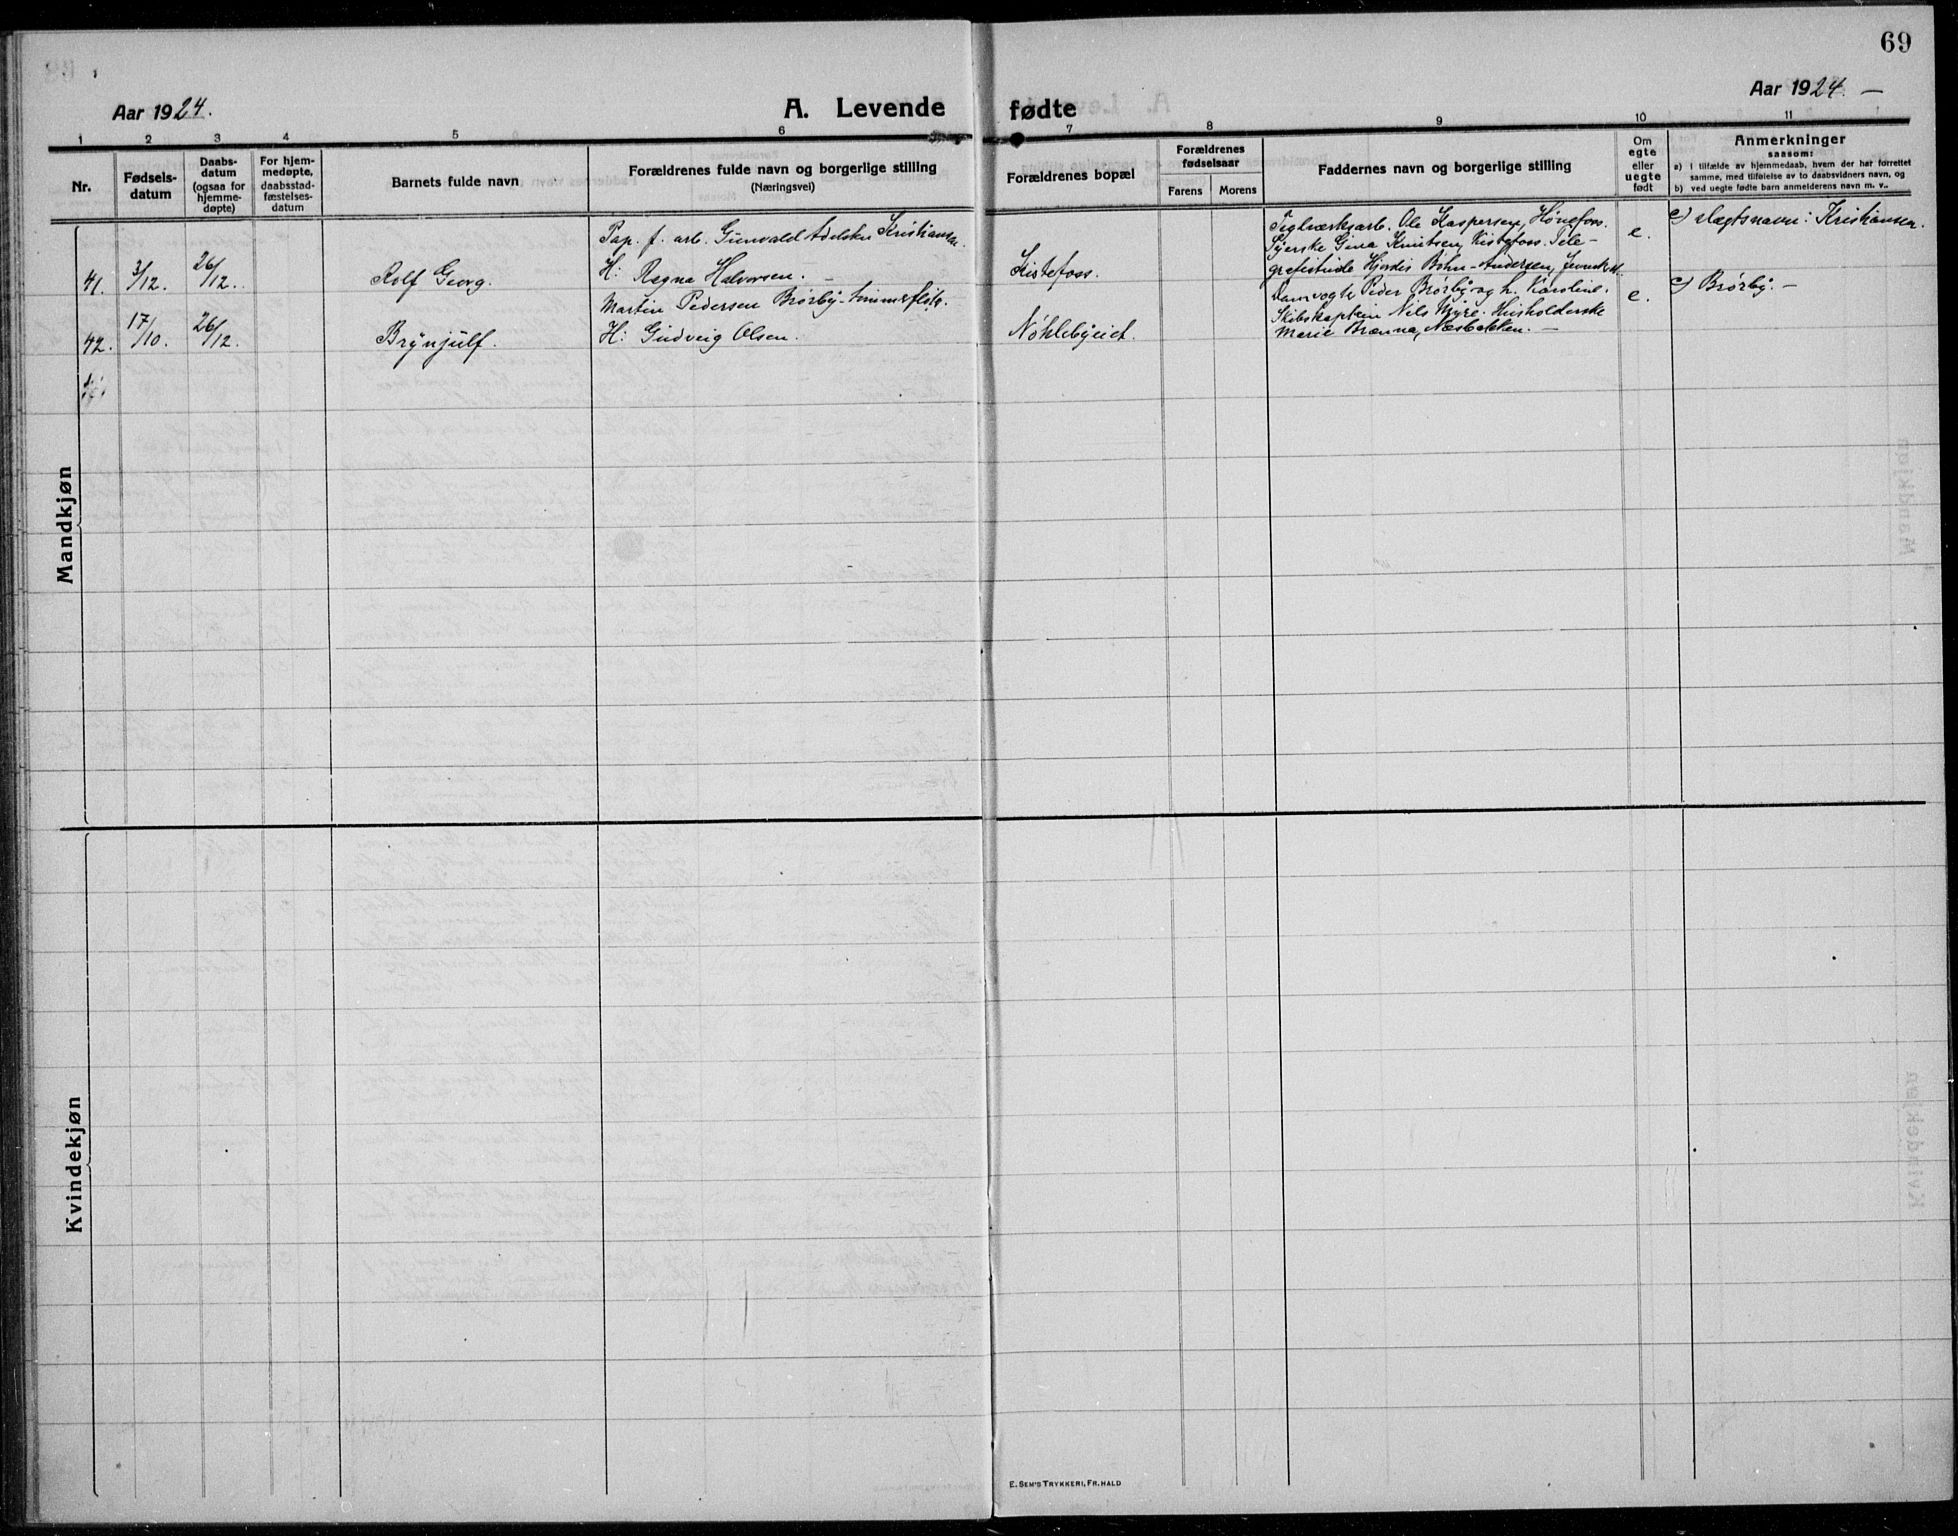 69
Aar 1924.
A. Levende
fødte
Aar 1924. —
1 2 3 4 5 6 7 8 9 10 11
Nr.
Fødsels-
datum
Daabs-
datum
(ogsaa for
hjemme-
døpte)
For hjem-
medøpte,
daabsstad-
fæstelses-
datum
Barnets fulde navn
Forældrenes fulde navn og borgerlige stilling
(Næringsvei)
Forældrenes bopæl
Forældrenes
fødselsaar
Farens Morens
Faddernes navn og borgerlige stilling
Om
egte
eller
uegte
født
Anmerkninger
saasom:
a) i tilfælde av hjemmedaab, hvem der har forrettet
samme, med tilføielse av to daabsvidners navn, og
b) ved uegte fødte barn anmelderens navn m. v..
Mandkjøn
41. 3/12. 26/12. Rolf Georg.
Pap. f. arb. Gunvald Kristiansen.
H: Ragna Halvorsen. —
Kistefoss.
Teglverksarb. Ole Kaspersen, Hønefoss.
Syerske Gina Knutsen, Kistefoss. Tele-
grafistinde Hjørdis Bohn-Andersen,
e.
c) Slegtsnavn: Kristiansen.
42. 17/10. 26/12. Brynjulf.
Martin Pedersen Brørby
H: Gudveig Olsen.
Nøklebyeiet.
Damvogter Peder Brørby og h. Karoline.
Skibskaptein Nils Husholderske
Marie Brænna, Næsbakken. —
e.
c) Brørby. —
Kvindekjøn
E. SEM'S TRYKKERI, FR.HALD